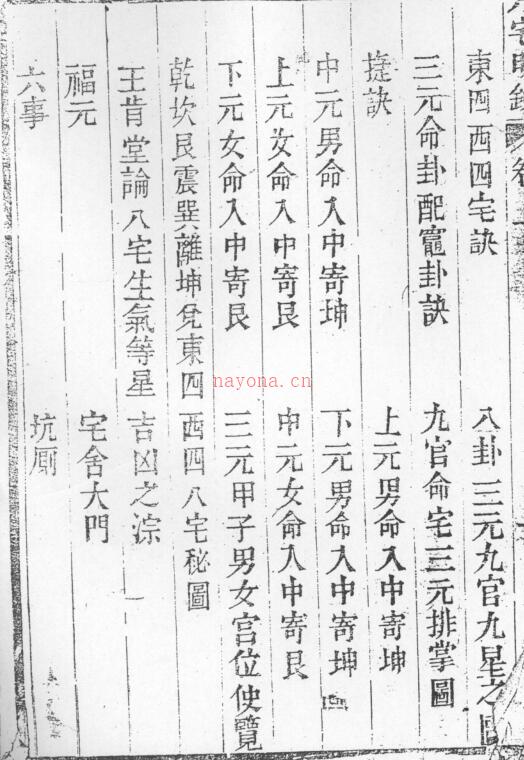 東四西四宅訣 八卦三元九宮九星之圖
三元命卦配竈卦訣 九宮命宅三元排掌圖
捷訣 上元男命入中寄坤
中元男命入中寄坤 下元男命入中寄坤
上元女命入中寄艮 中元女命入中寄艮
下元女命入中寄艮 三元甲子男女宮位使覽
乾坎艮震巽離坤兌東四 西四八宅秘圖
王肯堂論八宅生氣等星 吉凶之淙
福元 宅舍大門
六事 坑厠
nayona.cn